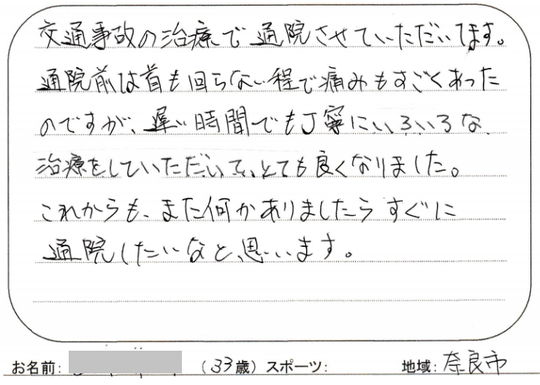 交通事故の治療で通院させていただいてます。
通院前は首も回らない程で痛みもすごくあった
のですが、遅い時間でも丁寧にいろいろな
治療をしていただいて、とても良くなりました。
これからも、また何かありましたらすぐに
通院したいなと、思います。
お名前: (33歳) スポーツ: 地域: 奈良市